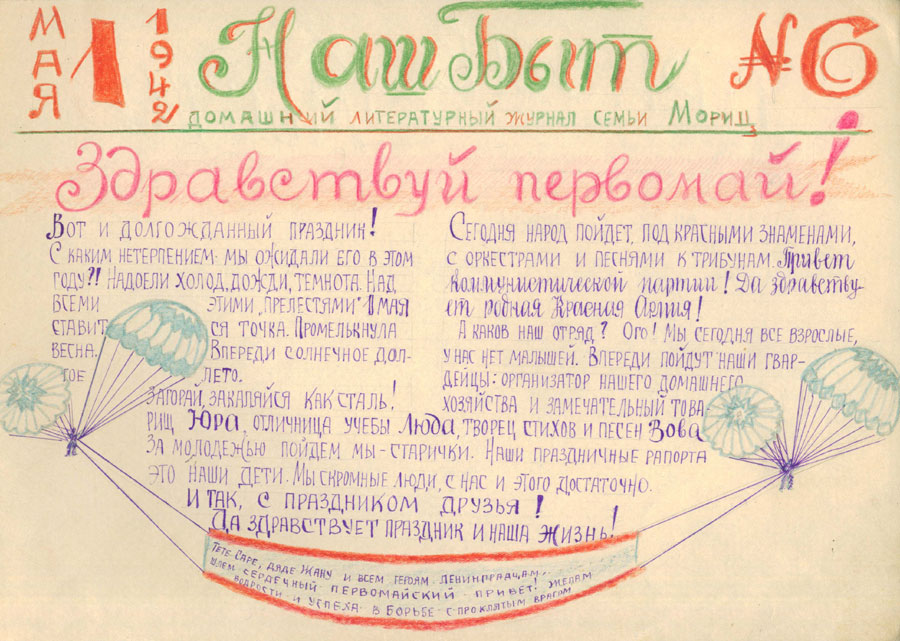 1 МАЯ 1942
Наш Быт
№ 6
домашний литературный журнал семьи Мориц
Здравствуй первомай!
Вот и долгожданный праздник!
С каким нетерпением мы ожидали его в этом
году?! Надоели холод, дожди, темнота. Над
всеми этими „прелестями" 1 мая
ставится точка. Промелькнула
весна. Впереди солнечное дол-
гое лето.
Загорай, закаляйся как сталь!
Сегодня народ пойдет, под красными знаменами,
с оркестрами и песнями к трибунам. Привет
коммунистической партии! Да здравству-
ет родная Красная Армия!
А каков наш отряд? Ого! Мы сегодня все взрослые,
у нас нет малышей. Впереди пойдут наши гвар-
дейцы: организатор нашего домашнего
хозяйства и замечательный това-
рищ Юра, отличница учебы Люда, творец стихов и песен Вова
За молодежью пойдем мы - старички. Наши праздничные рапорта
это наши дети. Мы скромные люди, с нас и этого достаточно.
И так, с праздником друзья!
Да здравствует праздник и наша жизнь!
Тете Саре, дяде Жану и всем героям ленинградцам,
шлем сердечный первомайский привет! Желаем
бодрости и успеха в борьбе с проклятым врагом